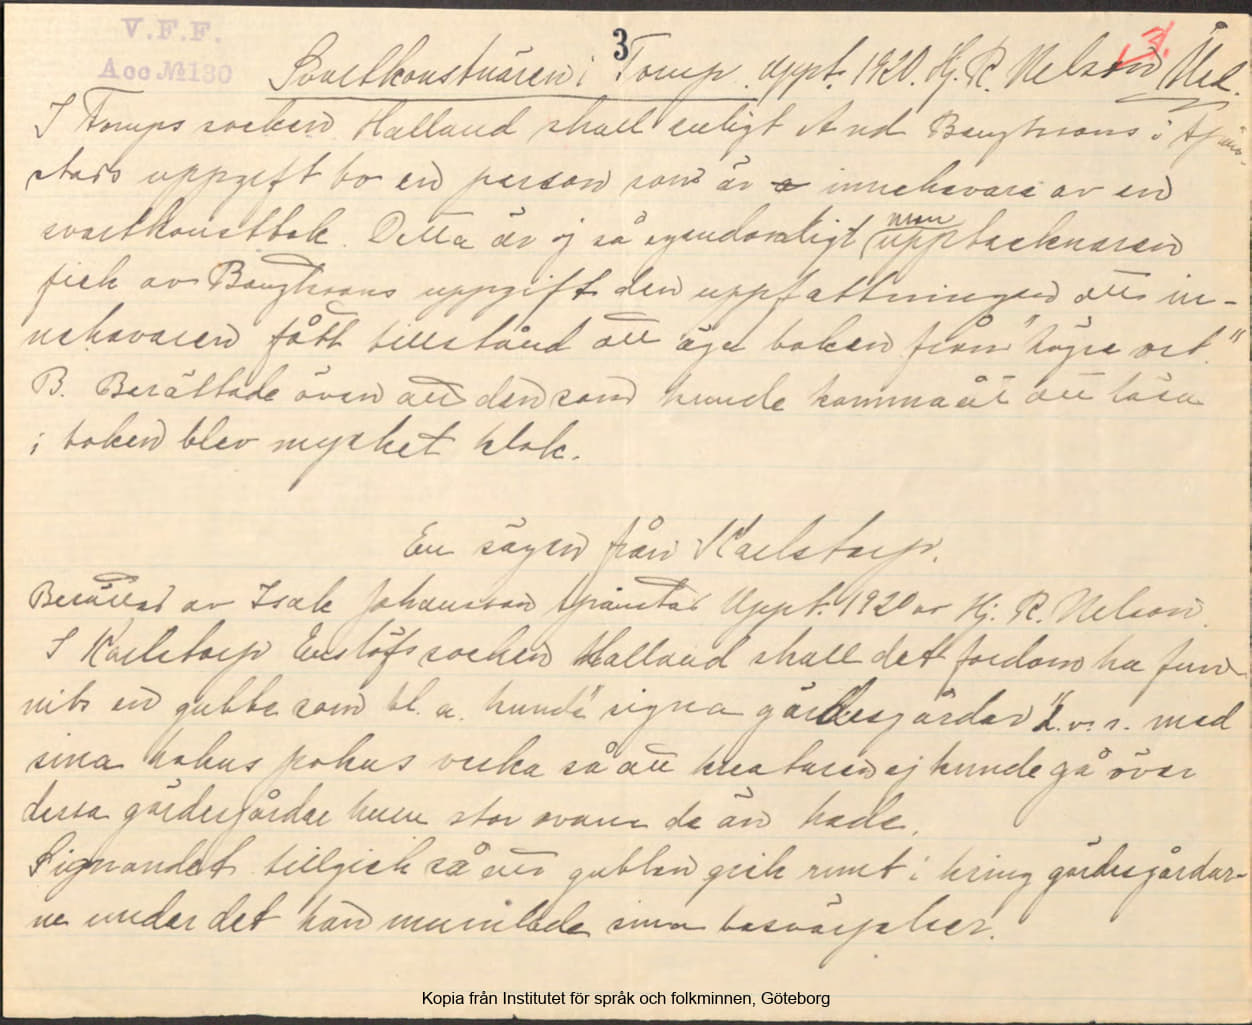 V.F.F.
Acc №180
3
3.
Svartkonstnären i Torup. Uppt. 1920. Hj. R. Nelson, Åled.
I Torups socken Halland skall enligt And Bengtssons i Spän-
stads uppgift bo en person som är innehavare av en
svartkonstbok. Detta är ej så egendomligt men upptecknaren
fick av Bengtssons uppgift den uppfattningen att in-
nehavaren fått tillstånd att äga boken från "högre ort."
B. Berättade även att den som kunde komma åt att läsa
i boken blev mycket klok.
En sägen från Karlstorp.
Berättad av Isak Johansson Spänstad Uppt. 1920 av Hj. R. Nelson.
I Karlstorp Enslöfs socken Halland skall det fordom ha fun-
nits en gubbe som bl. a. kunde "signa gärdesgårdar" d.v.s. med
sina hokus pokus verka så att kreaturen ej kunde gå över
dessa gärdesgårdar huru stor vana de än hade.
Signandet tillgick så att gubben gick runt i kring gärdesgårdar-
ne under det han mumlade sina besvärjelser.
Kopia från Institutet för språk och folkminnen, Göteborg